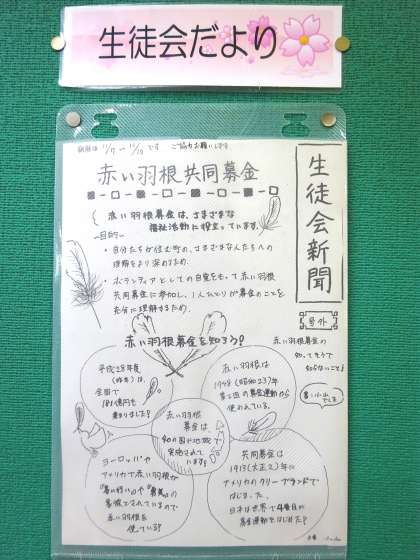 生徒会だより
期間は 11/7~11/10です ご協力お願いします
赤い羽根共同募金
生徒会新聞
号外
赤い羽根募金は、さまざまな
福祉活動に役立っています。
―目的―
・自分たちが住む町の、さまざまな人たちへの
理解をより深めるため。
・ボランティアとしての自覚をもって赤い羽根
共同募金に参加し、1人ひとりが募金のことを
充分に理解するため。
赤い羽根募金を知ろう?
赤い羽根募金の
知ってそうで
知らないこと♪
平成28年度
(昨年)は、
全国で
181億円も
集まりました?
赤い羽根は
1948(昭和23)年
第2回の募金運動から
使われている。
赤い羽根
募金は
40の国や地域で
実施されて
います?
ヨーロッパや
アメリカで赤い羽根が
"善い行い"や"勇気"の
象徴とされているので
赤い羽根を
使っている?
共同募金は
1913(大正2)年に
アメリカのクリーブランドで
はじまった。
日本は世界で4番目に
募金運動をはじめた?